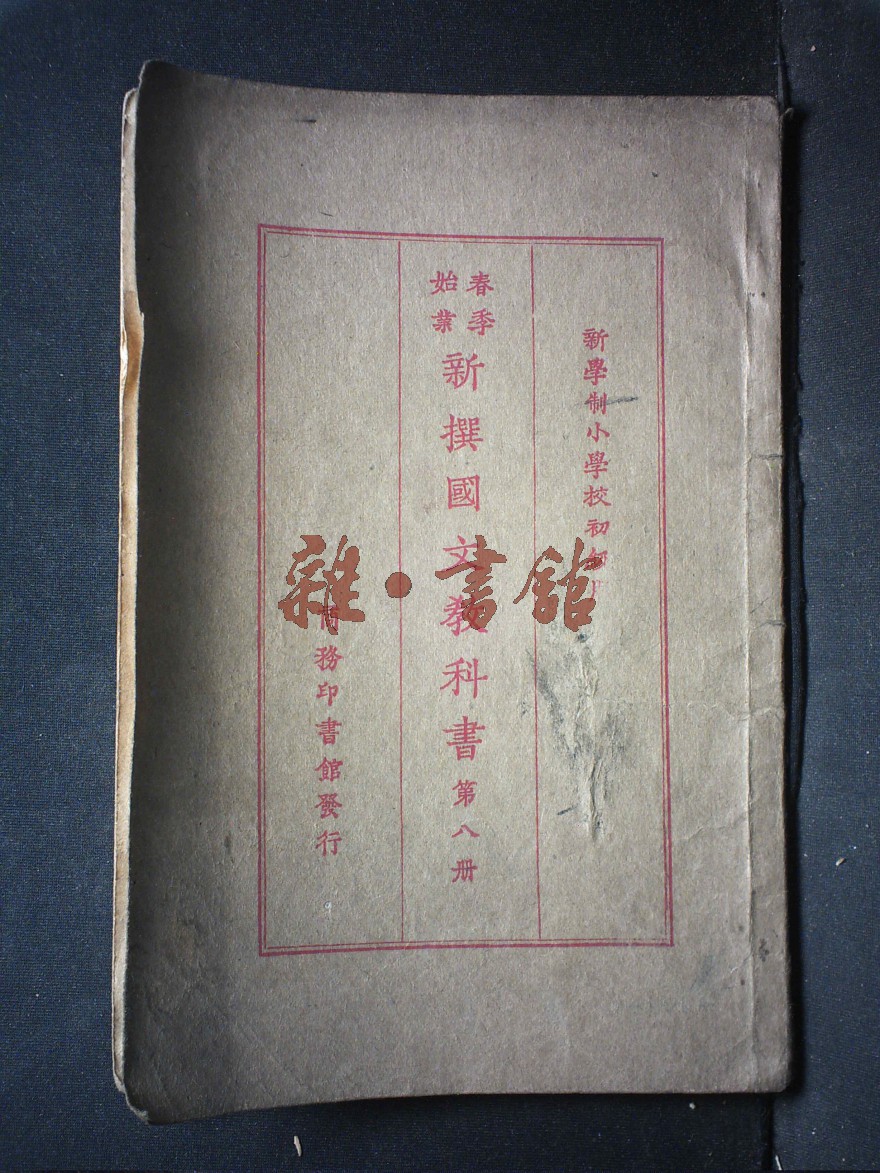 新學制小學校初級
春季始業 新撰國文教科書 第八册
商務印書館發行
雜·書館